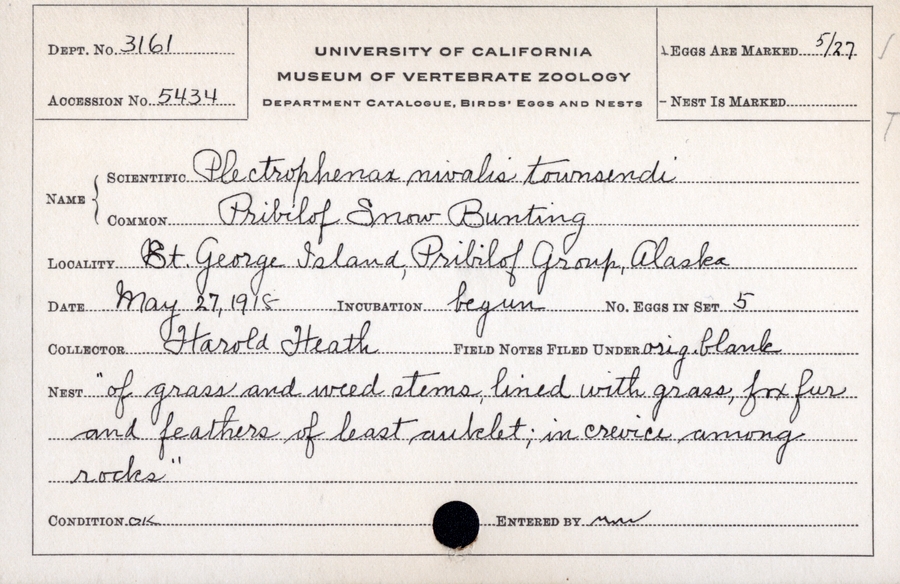 DEPT. No. 3161
ACCESSION No. 5434
UNIVERSITY OF CALIFORNIA
MUSEUM OF VERTEBRATE ZOOLOGY
DEPARTMENT CATALOGUE, BIRDS' EGGS AND NESTS
EGGS ARE MARKED 5/27
NEST IS MARKED
NAME
SCIENTIFIC Plectrophenax nivalis townsendi
COMMON Pribilof Snow Bunting
LOCALITY St. George Island, Pribilof Group, Alaska
DATE May 27, 1918 INCUBATION begun No. EGGS IN SET 5
COLLECTOR Harold Heath FIELD NOTES FILED UNDER orig. blank
NEST "of grass and weed stems, lined with grass, fox fur
and feathers of least auklet; in crevice among
rocks"
CONDITION OK ENTERED BY